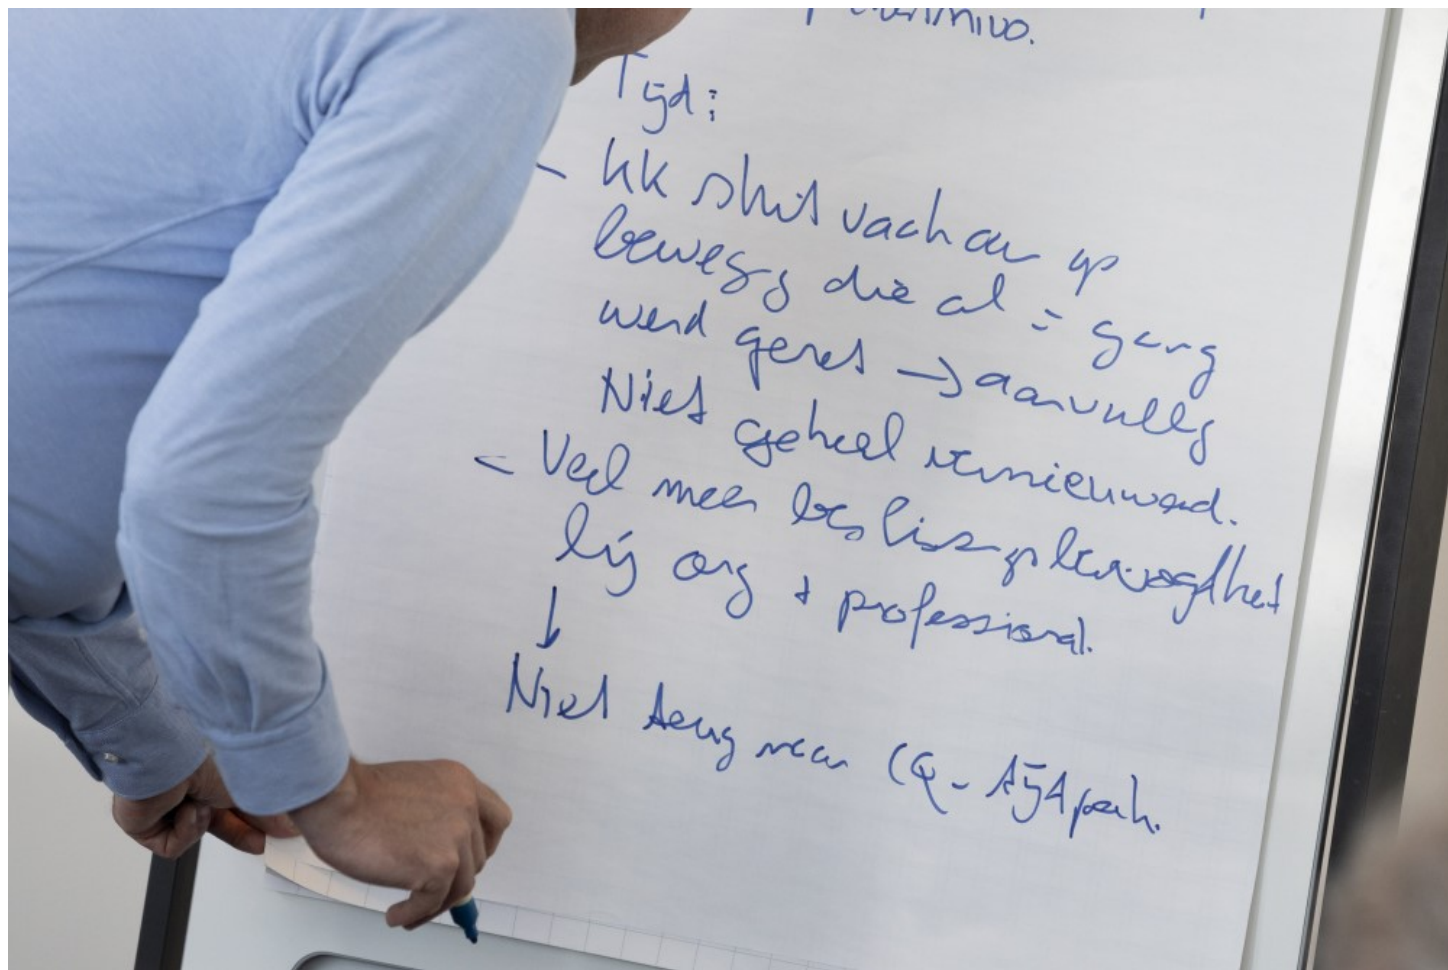 Tijd:
- KK sluit vach aan op
bewegg die al = gang
werd gezet → aanvullg
Niet geheel vernieuwend.
- Veel meer besliss bevoegdheid
bij org + professional.
↓
Niet terug naar CQ-tijdperk.